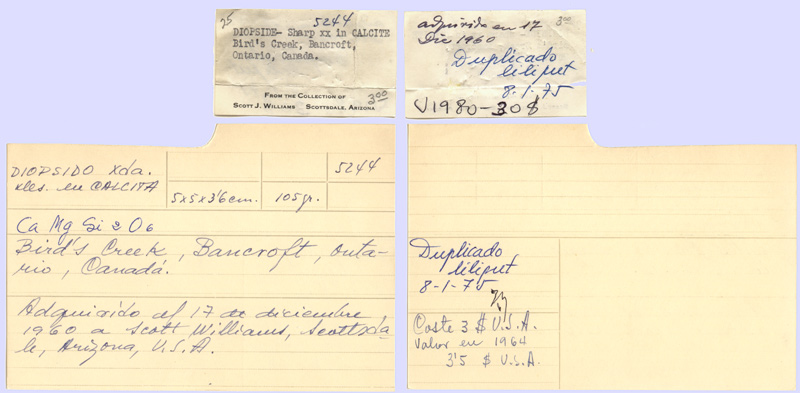 25
5244
DIOPSIDE- Sharp xx in CALCITE
Bird's Creek, Bancroft,
Ontario, Canada.
FROM THE COLLECTION OF
SCOTT J. WILLIAMS SCOTTSDALE, ARIZONA
3.00
adquirida en 17
Dic 1960
3.00
Duplicado
liliput
8-1-75
V1980-30$
DIOPSIDO Xda.
xles. en CALCITA
5x5x3'6 cm.
105 gr.
5244
Ca Mg Si2O6
Bird's Creek, Bancroft, Onta-
rio, Canadá.
Adquirido el 17 de diciembre
1960 a Scott Williams, Scottsda-
le, Arizona, U.S.A.
Duplicado
liliput
8-1-75
Coste 3 $ U.S.A.
Valor en 1964
3'5 $ U.S.A.